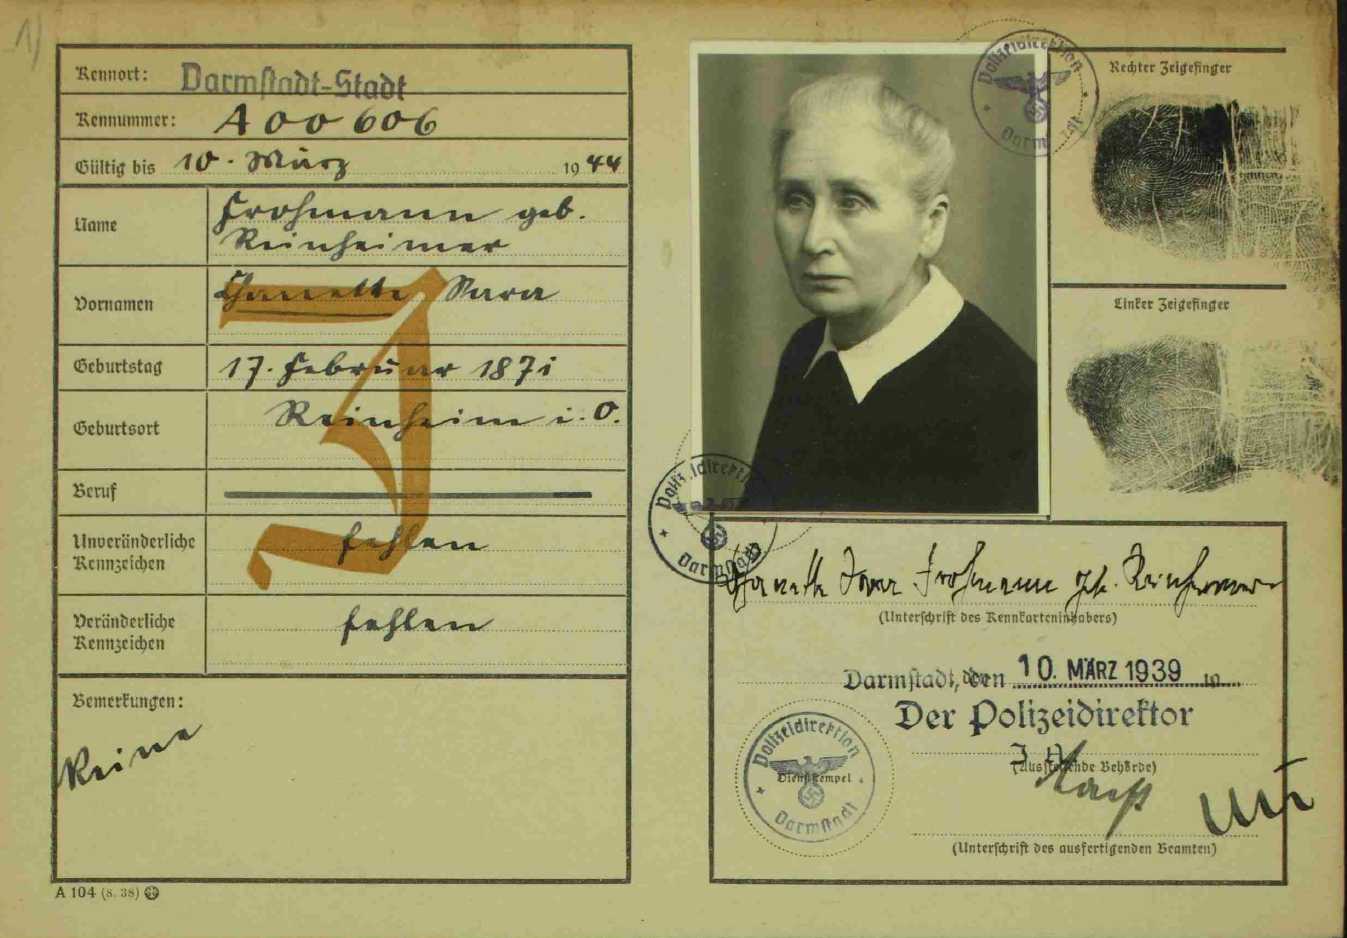 1)
Kennort: Darmstadt-Stadt
Kennummer: A 00 606
Gültig bis 10. März 1944
Name Frohmann geb.
Reinheimer
Vornamen Sara
J
Geburtstag 17. Februar 1871
Geburtsort Reinheim i. O.
Beruf
Unveränderliche fehlen
Kennzeichen
Veränderliche fehlen
Kennzeichen
Bemerkungen:
Keine
A 104 (8. 38)
Polizeidirektion
Darmstadt
Rechter Zeigefinger
Linker Zeigefinger
Polizeidirektion
Darmstadt
Sara Frohmann geb. Reinheimer
(Unterschrift des Kennkarteninhabers)
Darmstadt, den 10. MÄRZ 1939 19
Der Polizeidirektor
(Ausstellende Behörde)
Polizeidirektion
Dienststempel
Darmstadt
(Unterschrift des ausfertigenden Beamten)